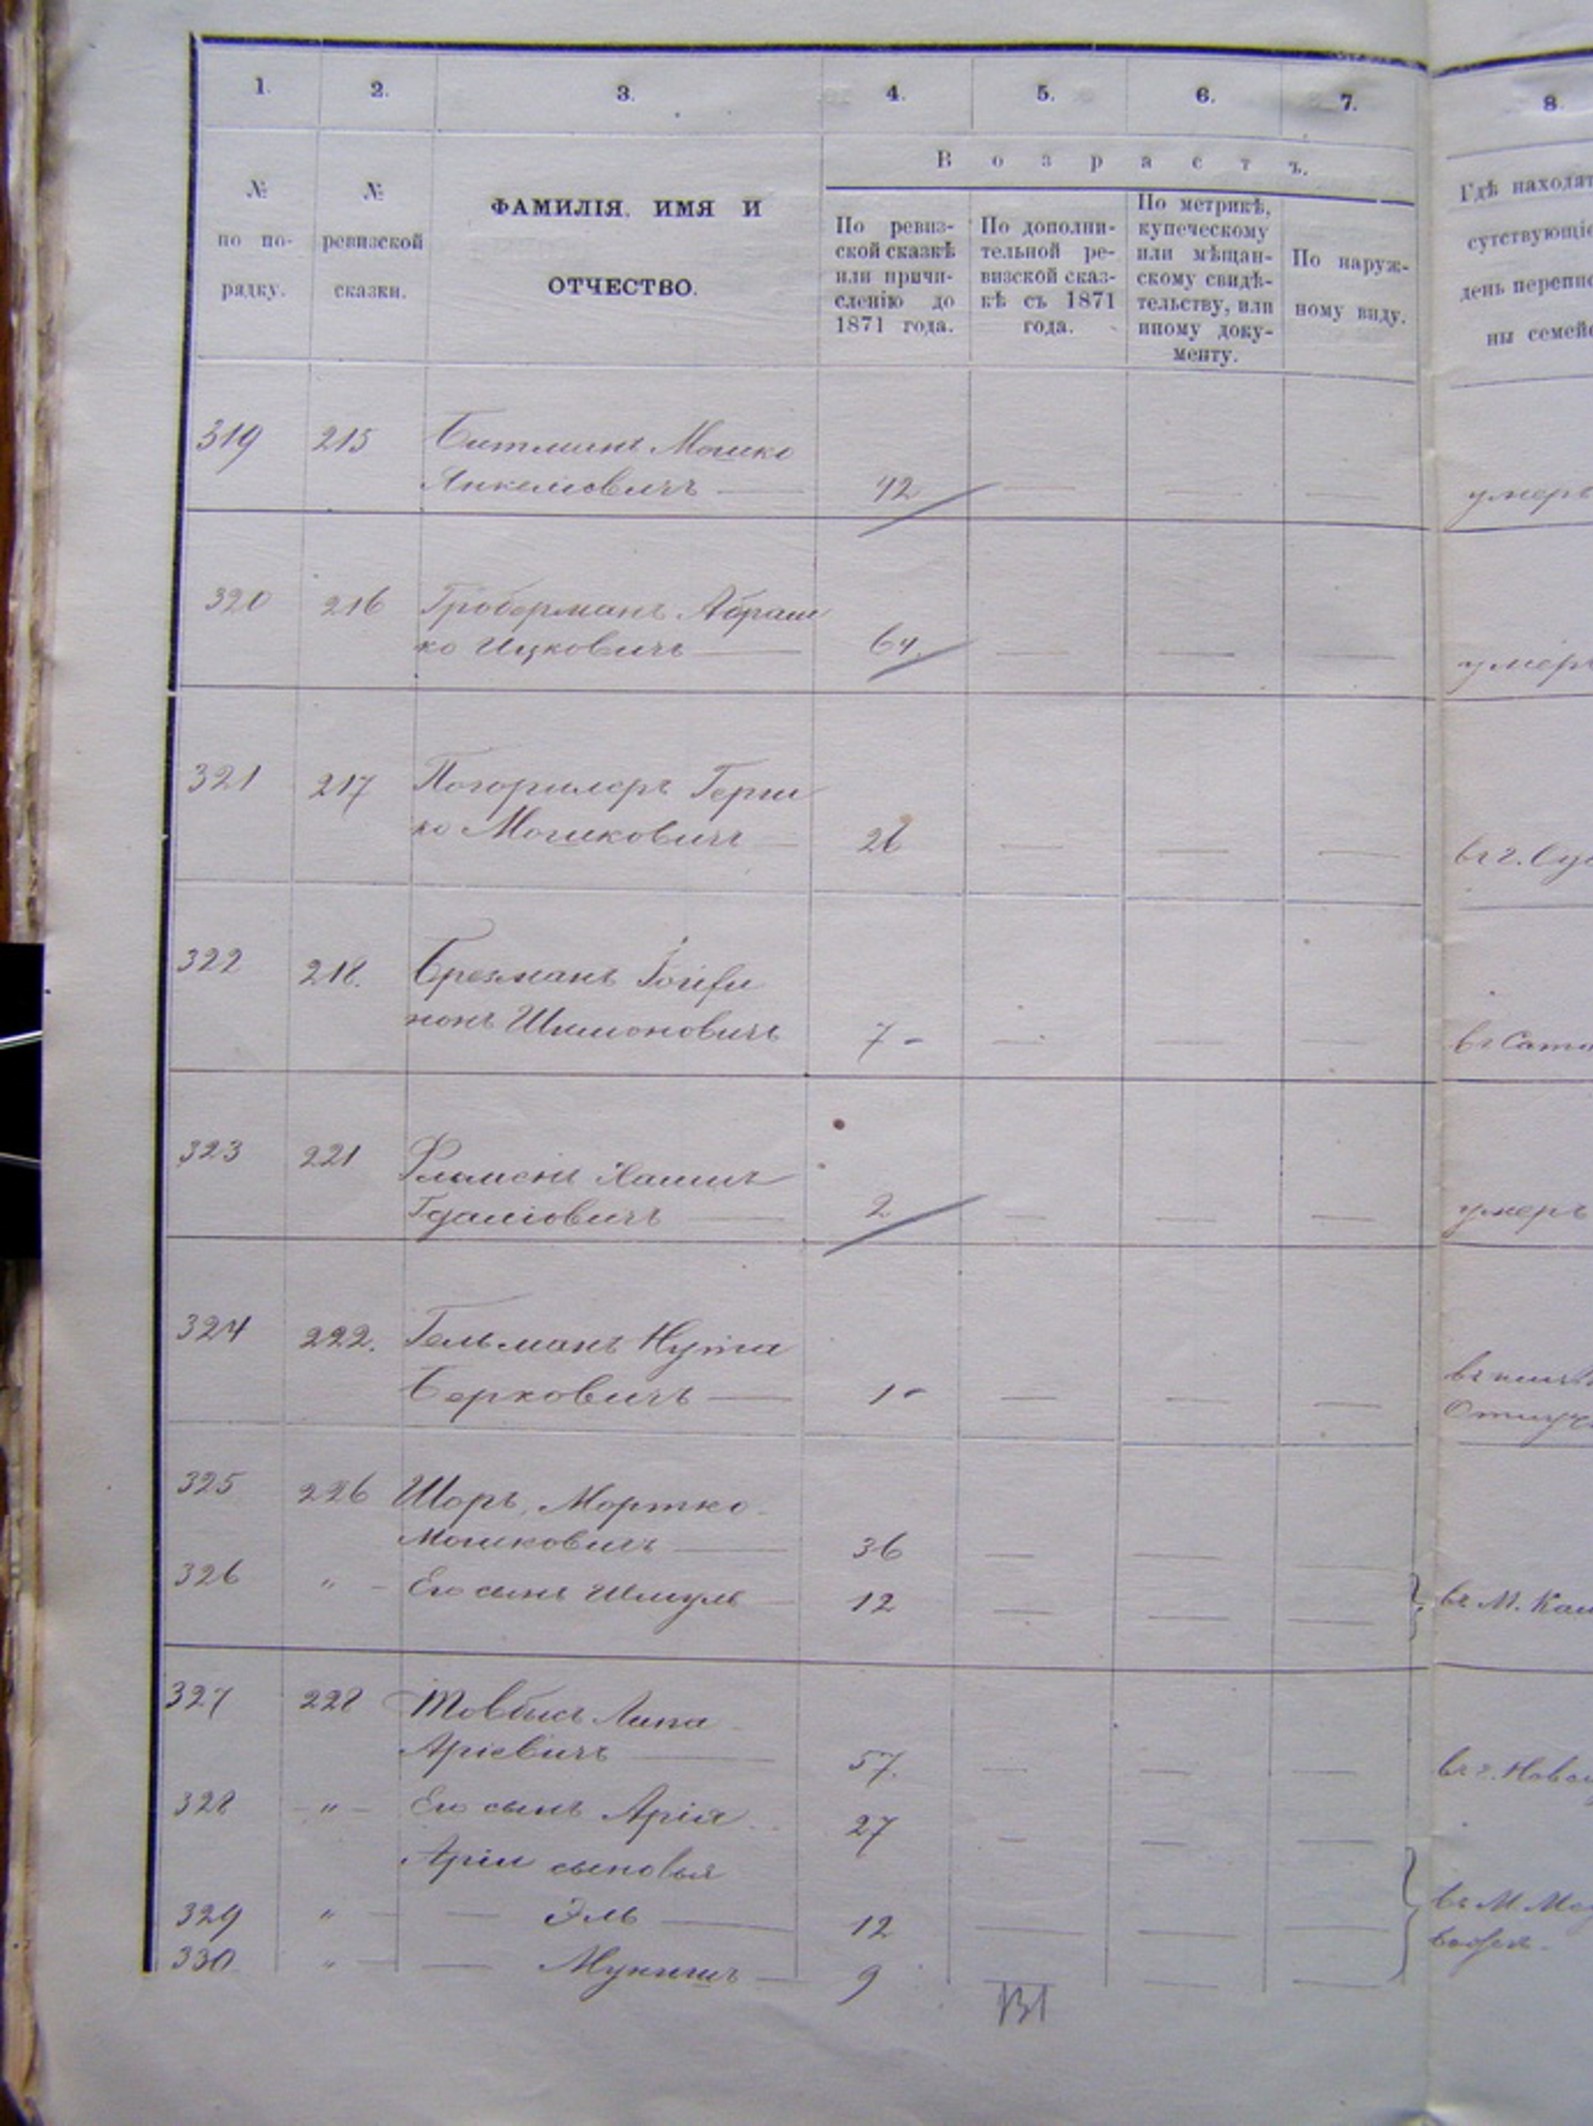 1. 2. 3. 4. 5. 6. 7. 8
В о з р а с т ъ.
№ по по-рядку.
№ ревизской сказки.
ФАМИЛІЯ, ИМЯ И
ОТЧЕСТВО.
По ревиз-
ской сказкѣ
или причи-
сленію до
1871 года.
По дополни-
тельной ре-
визской сказ-
кѣ съ 1871
года.
По метрикѣ,
купеческому
или мѣщан-
скому свидѣ-
тельству, или
иному доку-
менту.
По наруж-
ному виду.
Гдѣ находят
сутствующіе
день перепис
ны семейс
319 215 Битманъ Мошко
Янкеліовичъ — 42 — — — умеръ
320 216 Гроберманъ Абраш
ко Ицковичъ — 64. — — — умеръ
321 217 Погорилеръ Герш
ко Мошковичъ — 26 — — — въ г.
322 218. Брезманъ
Шимоновичъ 7 - — — — въ
323 221 Хаимъ
Гдаліовичъ — 2 — — — умеръ
324 222. Гельманъ Нута
Берковичъ — 1 - — — —
325 226 Шоръ, Мортко
Мошковичъ — 36 — —
326 " - Его сынъ Шмуль — 12 — — — въ М. Кам
327 228 Товбисъ Липа
Аріевичъ — 57. — — — въ г. Ново
328 - " - Его сынъ Арія 27 — — —
Аріи сыновья
329 " — — Эль — 12 — — — въ М.
330 " — — — 9 — — —
131